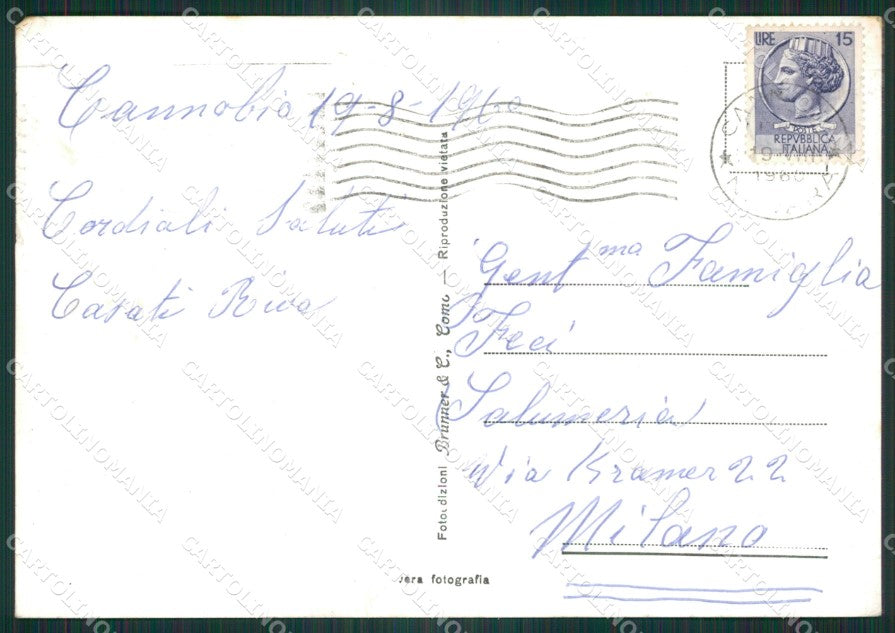 Cannobia 19-8-1960
Cordiali Saluti
Casati Riva
LIRE 15
POSTE
REPVBBLICA
ITALIANA
1960
Gent.ma Famiglia
Feci
Salumeria
Via Kramer 22
Milano
Fotoedizioni Brunner & C., Como — Riproduzione vietata
vera fotografia
CARTOLINOMANIA